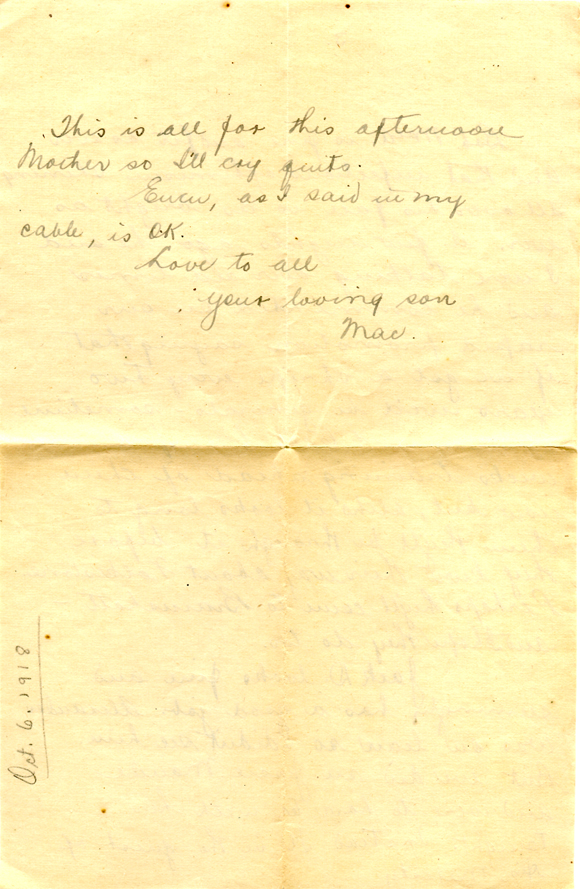 This is all for this afternoon
Mother so I'll cry quits.
as I said in my
cable, is OK.
Love to all
your loving son
Mac.
Oct. 6, 1918